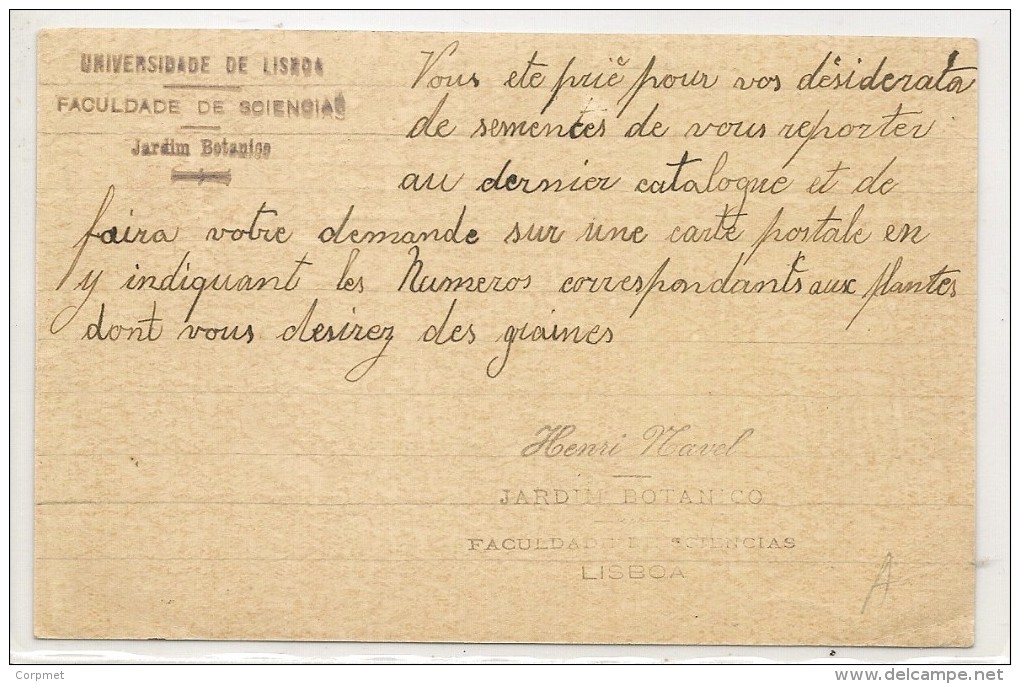 UNIVERSIDADE DE LISBOA
FACULDADE DE SCIENCIAS
Jardim Botanico
Vous ete prié pour vos désiderata
de semences de vous reporter
au dernier catalogue et de
faira votre demande sur une carte postale en
y indiquant les Numeros correspondants aux plantes
dont vous desirez des graines
Henri Navel
JARDIM BOTANICO
FACULDADE DE SCIENCIAS
LISBOA
A
Corpmet
delcampe.net